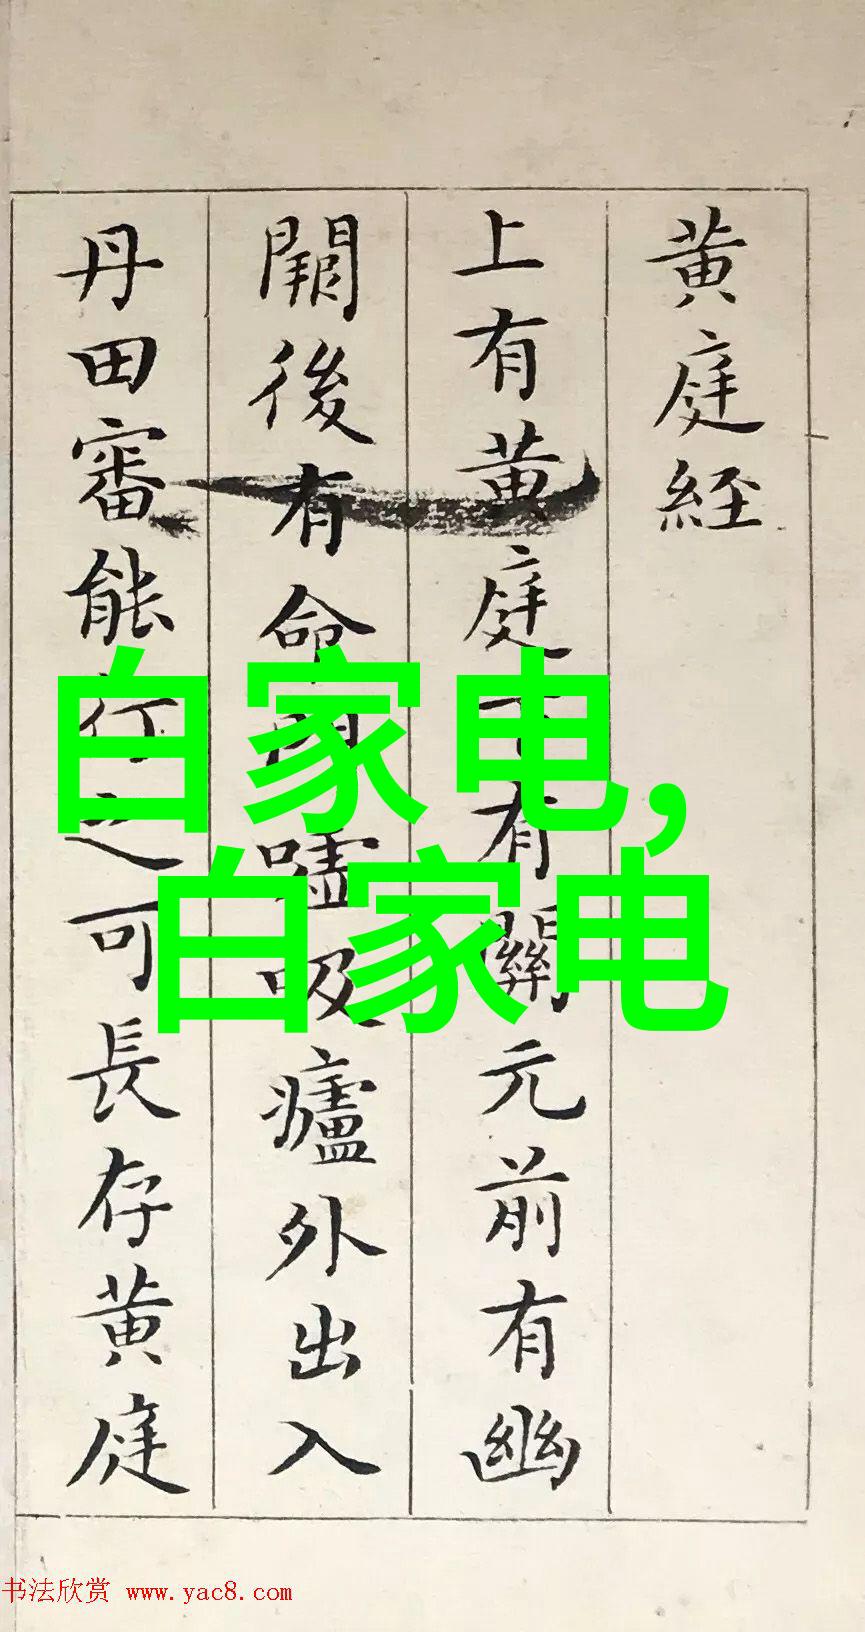 黄庭經
上有黄庭下有關元前有幽
闕後有命門嘘吸廬外出入
丹田審能行之可長存黄庭
白家电,
白家电
书法欣赏 www.yac8.com